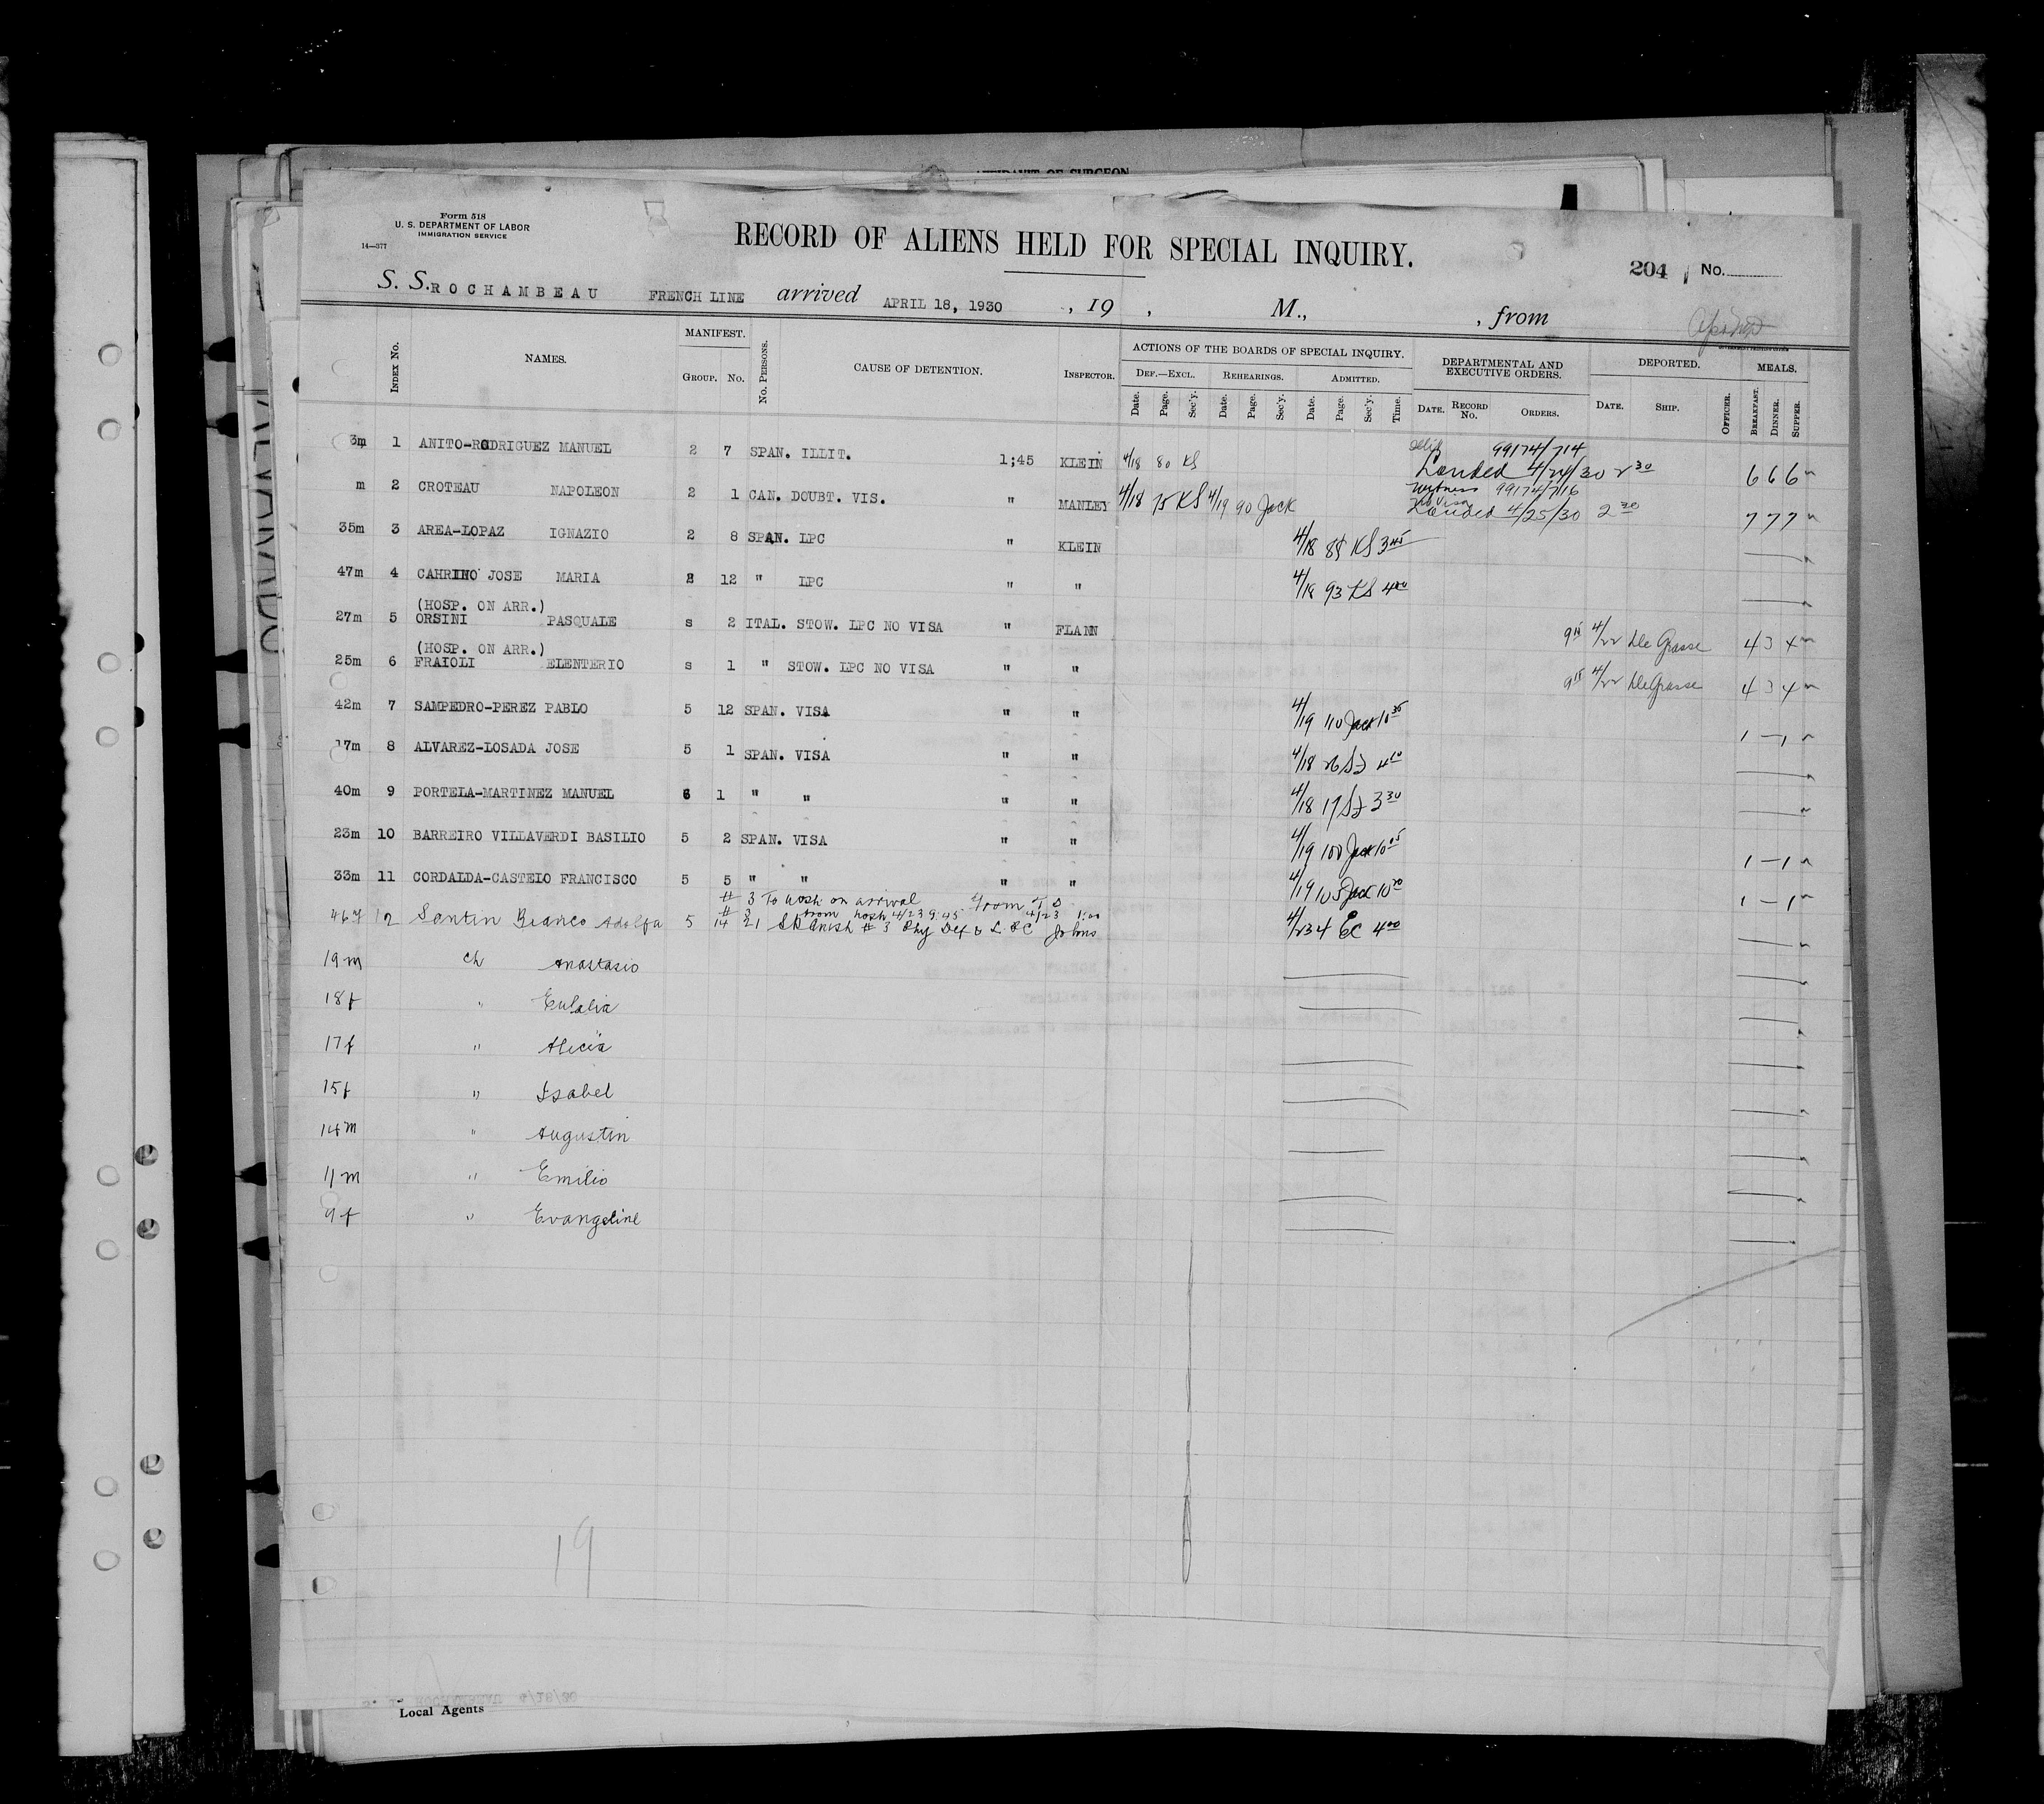 AFFIDAVIT OF SURGEON
Form 518
U. S. DEPARTMENT OF LABOR
IMMIGRATION SERVICE
14—377
RECORD OF ALIENS HELD FOR SPECIAL INQUIRY.
204 No.
S. S. ROCHAMBEAU FRENCH LINE arrived APRIL 18, 1930 , 19 , M., , from
INDEX No. NAMES. MANIFEST. GROUP. No. No. PERSONS. CAUSE OF DETENTION. INSPECTOR. ACTIONS OF THE BOARDS OF SPECIAL INQUIRY. DEPARTMENTAL AND EXECUTIVE ORDERS. DEPORTED. MEALS.
DEF.—EXCL. REHEARINGS. ADMITTED.
Date. Page. Sec'y. Date. Page. Sec'y. Date. Page. Sec'y. Time. DATE. RECORD No. ORDERS. DATE. SHIP. OFFICER. BREAKFAST. DINNER. SUPPER.
3m 1 ANITO-RODRIGUEZ MANUEL 2 7 SPAN. ILLIT. 1;45 KLEIN 4/18 80 KS 99174/714
Landed 4/24/30 2 30 6 6 6
m 2 CROTEAU NAPOLEON 2 1 CAN. DOUBT. VIS. " MANLEY 4/18 75 KS 4/19 90 Jack Witness 99174/716
Landed 4/25/30 2 30 7 7 7
35m 3 AREA-LOPAZ IGNAZIO 2 8 SPAN. LPC " KLEIN 4/18 88 KS 3 45
47m 4 CAHRINO JOSE MARIA 2 12 " LPC " " 4/18 93 KS 4 00
(HOSP. ON ARR.)
27m 5 ORSINI PASQUALE s 2 ITAL. STOW. LPC NO VISA " FLANN 9 15 4/22 De Grasse 4 3 4
(HOSP. ON ARR.)
25m 6 FRAIOLI ELENTERIO s 1 " STOW. LPC NO VISA " " 9 15 4/22 De Grasse 4 3 4
42m 7 SAMPEDRO-PEREZ PABLO 5 12 SPAN. VISA " " 4/19 110 Jack 10 35 1 — 1
17m 8 ALVAREZ-LOSADA JOSE 5 1 SPAN. VISA " " 4/18 26 4 10
40m 9 PORTELA-MARTINEZ MANUEL 6 1 " " " " 4/18 17 3 30
23m 10 BARREIRO VILLAVERDI BASILIO 5 2 SPAN. VISA " " 4/19 100 Jack 10 05 1 — 1
33m 11 CORDALDA-CASTELO FRANCISCO 5 5 " " " " 4/19 105 Jack 10 20 1 — 1
# 3 To hosp on arrival From T D
# 3 from hosp 4/23 9:45 4/23 1:00
46f 12 Santin Blanco Adolfa 5 14 21 Spanish # 3 Phy Def & L P C Johns 4/23 4 EC 4 00
19m ch Anastasio
18f " Eulalia
17f " Alicia
15f " Isabel
14m " Augustin
11m " Emilio
9f " Evangeline
19
Local Agents